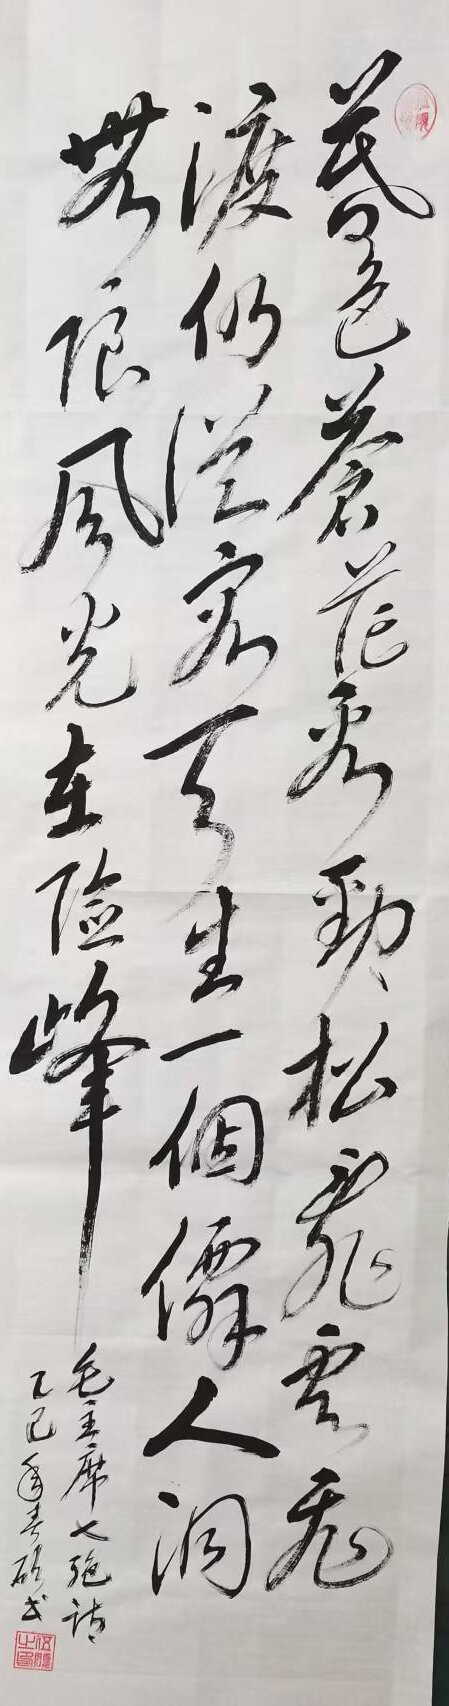 暮色蒼茫看勁松亂雲飛
渡仍從容天生一個僊人洞
無限風光在險峰
毛主席七绝诗
乙巳年春硕书